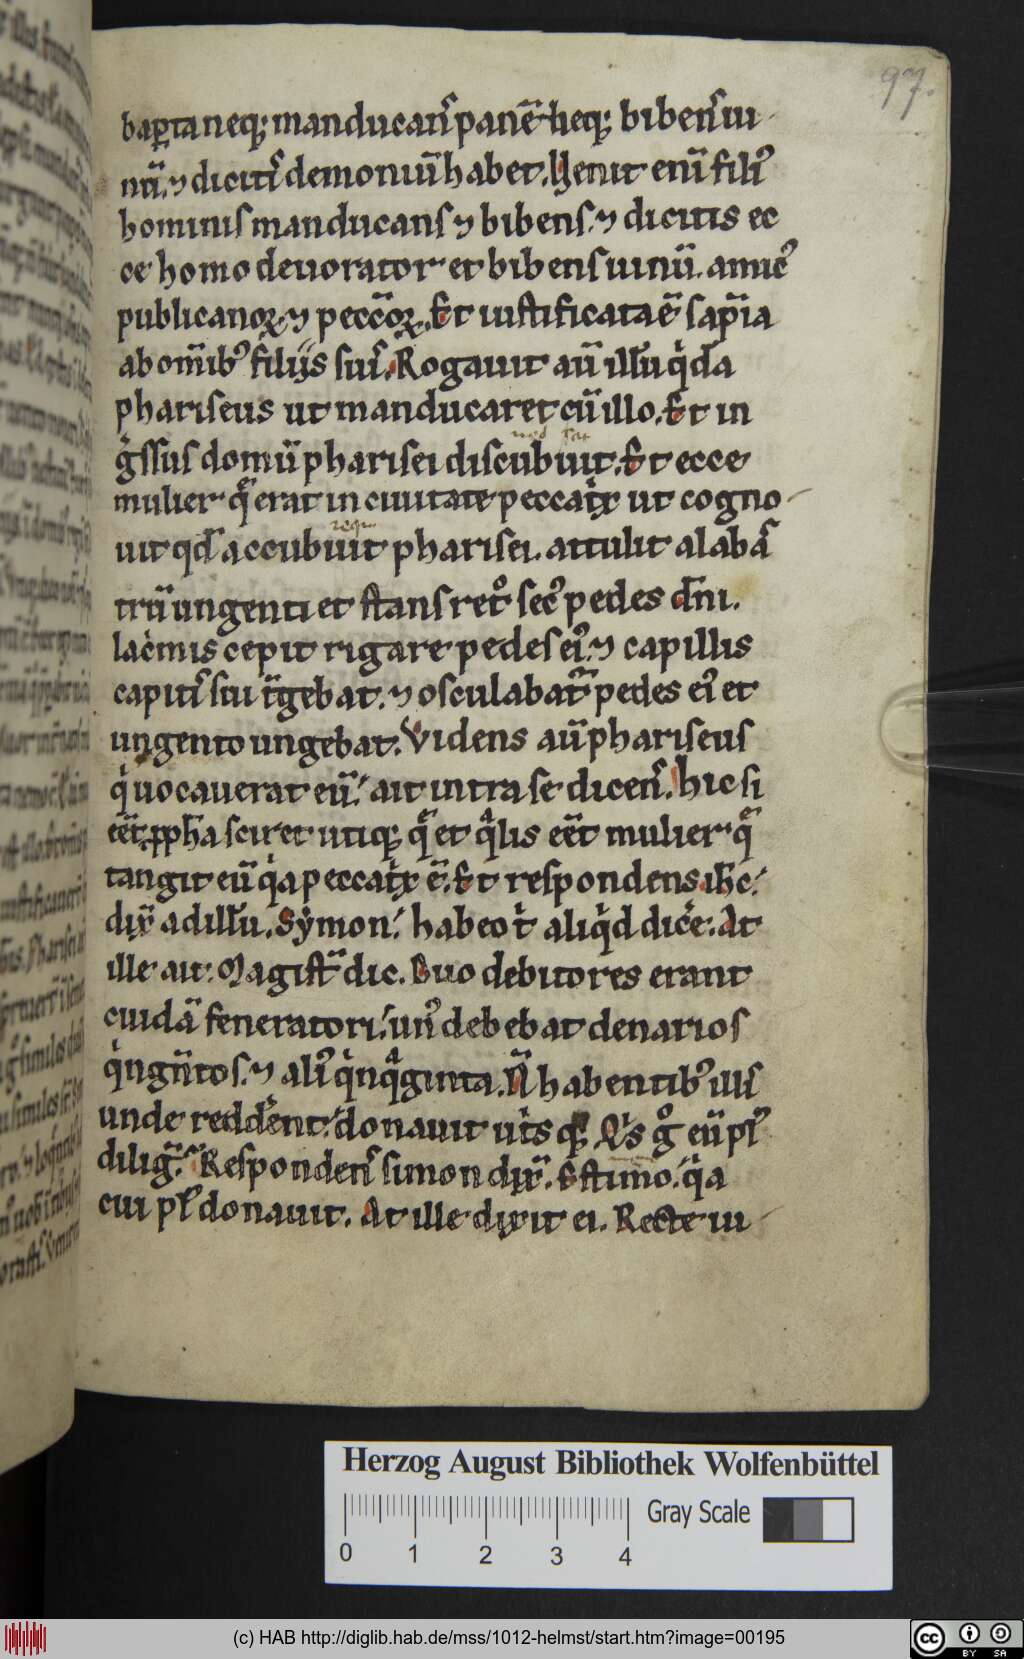 97.
bapta neq; manducanſ panē neq; bibenſ ui
nū. ⁊ dicitiſ demoniū habet. Venit enī filiꝰ
hominiſ manducanſ ⁊ bibenſ. ⁊ dicitis ec
ce homo deuorator et bibenſ uinū. amicꝰ
publicanoꝝ ⁊ peccāoꝝ. Et iuſtificata ē ſap̄ia
ab om̄ibꝰ filijs ſuiſ. Rogauit aū illū qͥdā
phariſeus ut manducaret cū illo. Et in
gͥſſuſ domū phariſei diſcubuit. Et ecce
mulier q̄ erat in ciuitate peccatͥx ut cogno
uit qd̄ accubuit phariſei. attulit alabaſ
trū ungenti et ſtanſ retͦ ſecꝰ pedes dn̄i.
lacͥmis cepit rigare pedeſ eiꝰ. ⁊ capillis
capitiſ ſui t̄gebat. ⁊ oſculabat᷑ pedes eiꝰ et
ungento ungebat. Videns aū phariſeuſ
qͥ uocauerat eū. ait intra ſe dicenſ. hic ſi
eēt pph̄a ſciret utiq; q̄ et qͣlis eēt mulier q̄
tangit eū qͥa peccatͥx ē. Et reſpondens ih̄c.
dix̄ ad illū. Sẏmon. habeo tͥ aliqͥd dicͤe. At
ille ait. Magiſt̄ dic. Duo debitores erant
cuidā feneratori. unꝰ debebat denarioſ
qͥngn̄toſ. ⁊ aliꝰ qͥnqͣginta. N̄ habentibꝰ illiſ
unde reddēnt. donauit utͥsq;. Qͥs gͦ eū plꝰ
diliḡ. Reſpondenſ ſimon dix̄. Eſtimo. qͥa
cui plꝰ donauit. At ille dixit ei. Recte iu
Herzog August Bibliothek Wolfenbüttel
Gray Scale
0 1 2 3 4
(c) HAB http://diglib.hab.de/mss/1012-helmst/start.htm?image=00195
cc BY SA